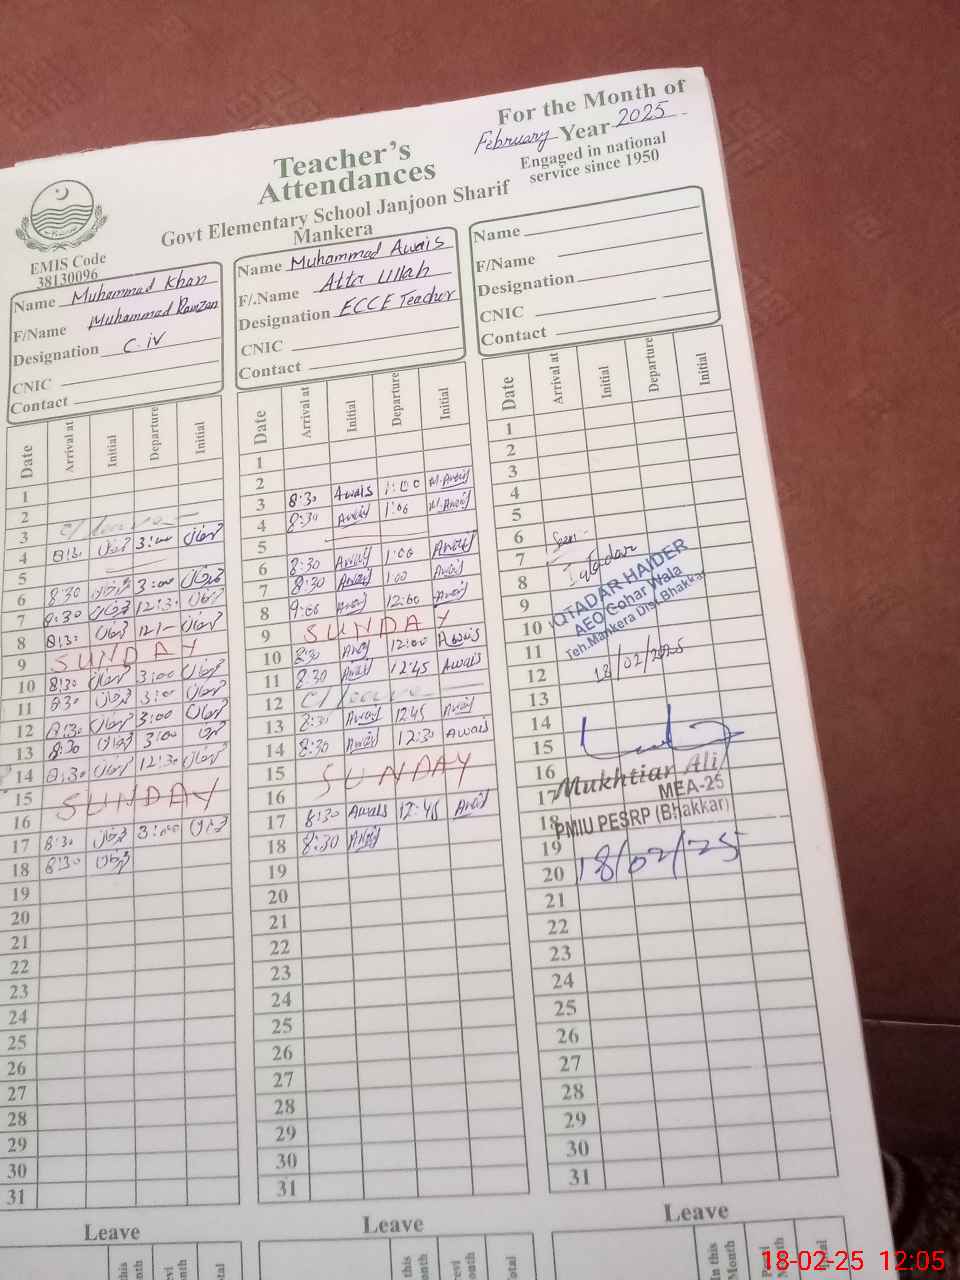 For the Month of
February Year 2025
Engaged in national
service since 1950
Teacher's
Attendances
Govt Elementary School Janjoon Sharif
Mankera
EMIS Code
38130096
Name Muhammad Khan
F/Name Muhammad Ramzan
Designation C.iV
CNIC
Contact
Name Muhammad Awais
F/.Name Atta Ullah
Designation ECCE Teacher
CNIC
Contact
Name
F/Name
Designation
CNIC
Contact
Date Arrival at Initial Departure Initial
1
2
3 C/leave
4 8:30 3:00
5
6 8:30 3:00
7 8:30 12:30
8 8:30
9 SUNDAY
10 8:30 3:00
11 8:30 3:00
12 8:30 3:00
13 8:30 3:00
14 8:30 12:30
15
16 SUNDAY
17 8:30 3:00
18 8:30
19
20
21
22
23
24
25
26
27
28
29
30
31
Leave
Date Arrival at Initial Departure Initial
1
2
3 8:30 Awais 1:00 M.Awais
4 8:30 Awais 1:00 M.Awais
5
6 8:30 Awais 1:00 Awais
7 8:30 Awais 1:00 Awais
8 9:00 Awais 12:00 Awais
9 SUNDAY
10 8:30 Awais 12:00 Awais
11 8:30 Awais 12:45 Awais
12 C/leave
13 8:30 Awais 12:45 Awais
14 8:30 Awais 12:30 Awais
15
16 SUNDAY
17 8:30 Awais 12:45 Awais
18 8:30 Awais
19
20
21
22
23
24
25
26
27
28
29
30
31
Leave
Date Arrival at Initial Departure Initial
1
2
3
4
5
6
7
8
9
10
11
12
13
14
15
16
17
18
19
20
21
22
23
24
25
26
27
28
29
30
31
Seen
Iqtadar
IQTADAR HAIDER
AEO Gohar Wala
Teh.Mankera Dist.Bhakkar
18/02/2025
Mukhtiar Ali
MEA-25
PMIU PESRP (Bhakkar)
18/02/25
Leave
In this Month
Total
18-02-25 12:05